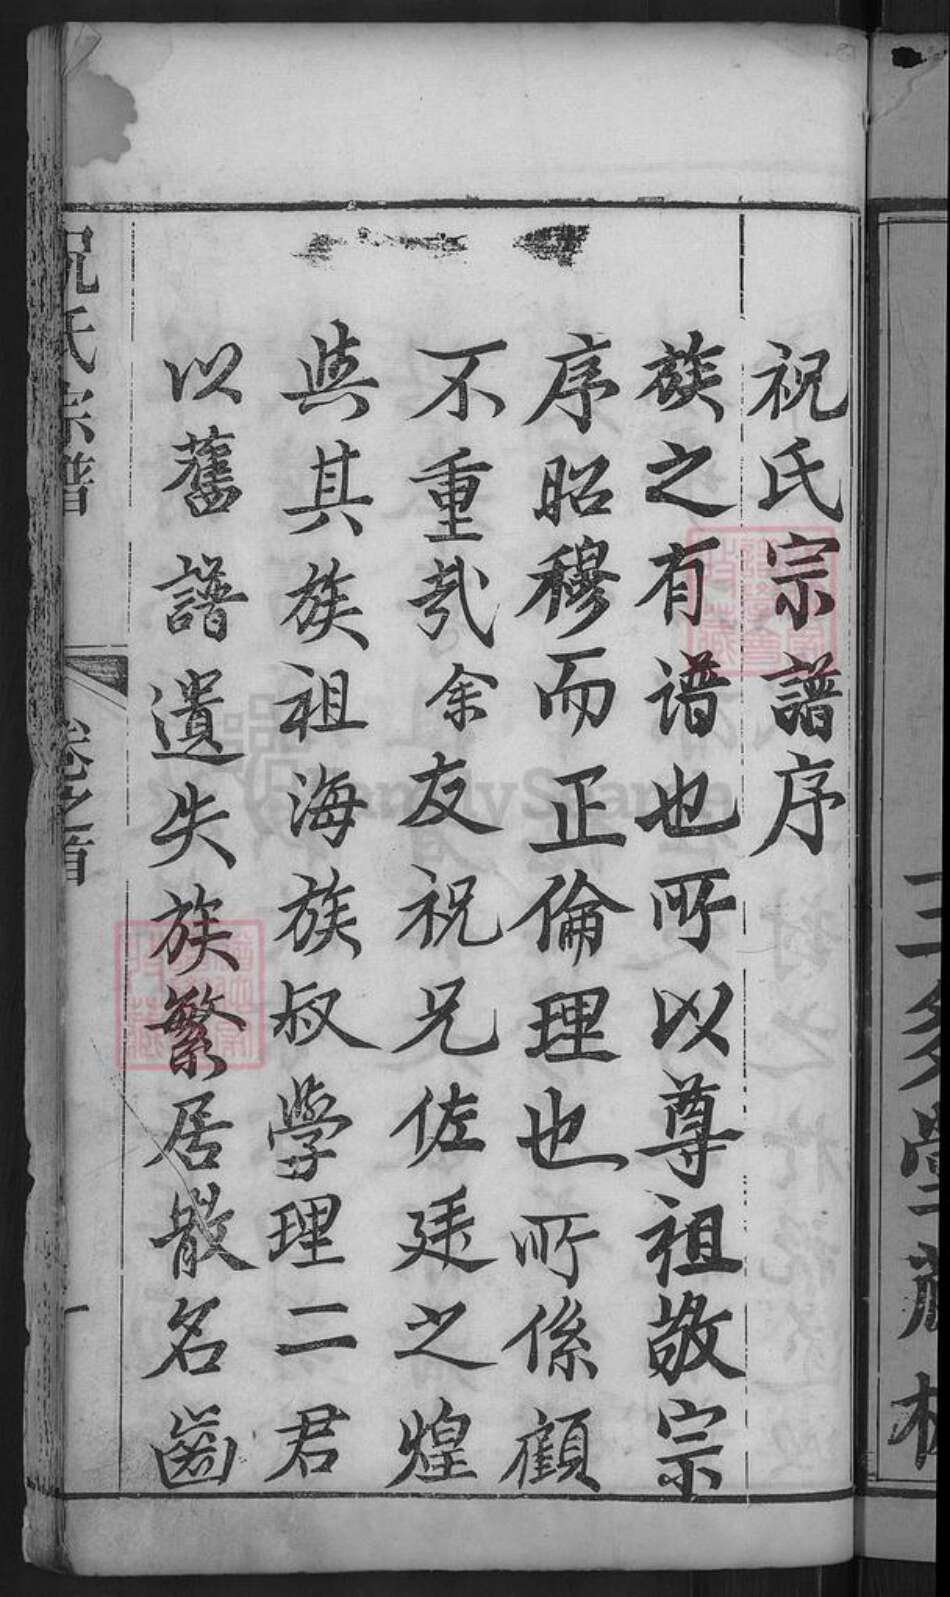 祝氏宗譜序
族之有譜也所以尊祖敬宗
序昭穆而正倫理也所係顧
不重哉余友祝兄佐廷之煌
與其族祖海族叔學理二君
以舊譜遺失族繁居散名齒
祝氏宗譜
卷之首
一
三多堂藏板